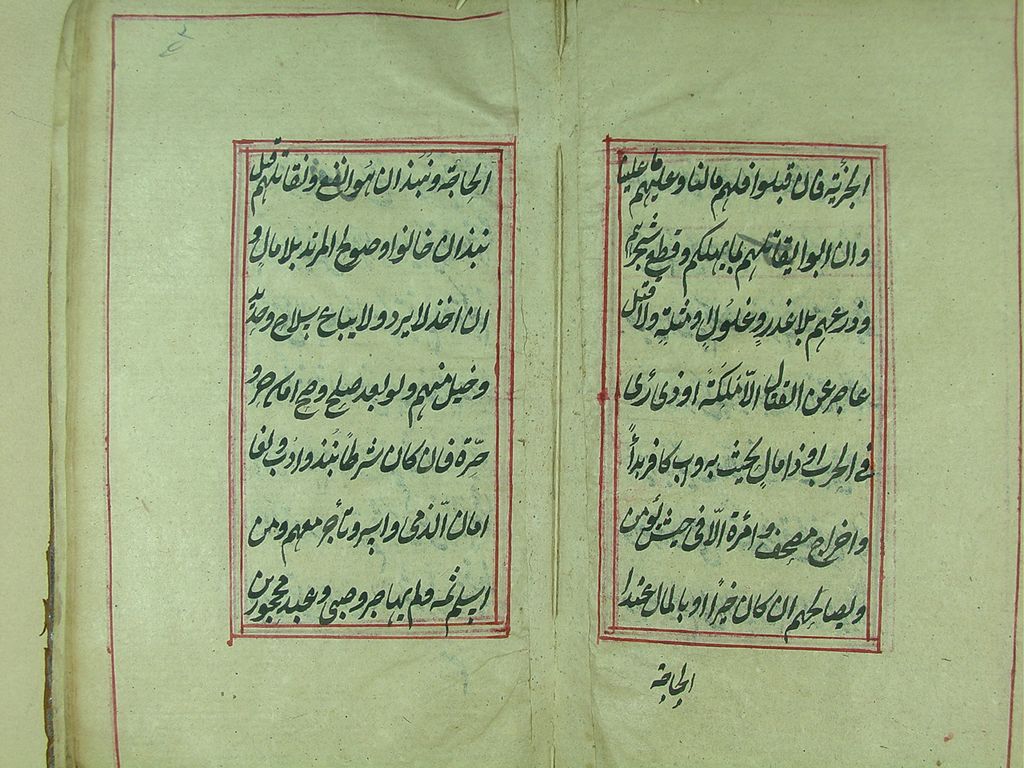 الجزية فان قبلوا فلهم مالنا وعليهم ما علينا
وان ابوا يقاتلهم بما يهلكهم وقطع شجرهم
وزرعهم بلا غدرٍ وغلولٍ ومثلةٍ ولا قتل
عاجز عن القتال الا مَلِكَةً او ذى رأى
فى الحرب او ذا مالٍ يحيث به واب كافر بدأً
واخراج مصحف وامرأة الّا فى جيش يؤمن
ويصالحهم ان كان خيرًا او بالمال عند
الحاجة
الحاجة ونبذ ان هو انفع ونقاتلهم قبل
نبذ ان خانوا وصولح المرتد بلا مالٍ و
ان اخذ لا يرد ولا يباع سلاح وحديد
وخيل منهم ولو بعد صلح وصح امان حر و
حرّة فان كان شرطًا نبذ وادب ولغا
امان الذمى واسير وتاجر معهم ومن
اسلم ثمه ولم يهاجر وصبى وعبد محجورين